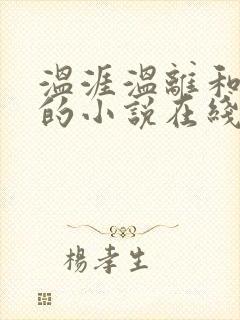 温涯温離和
的小說在綫
楊孝生